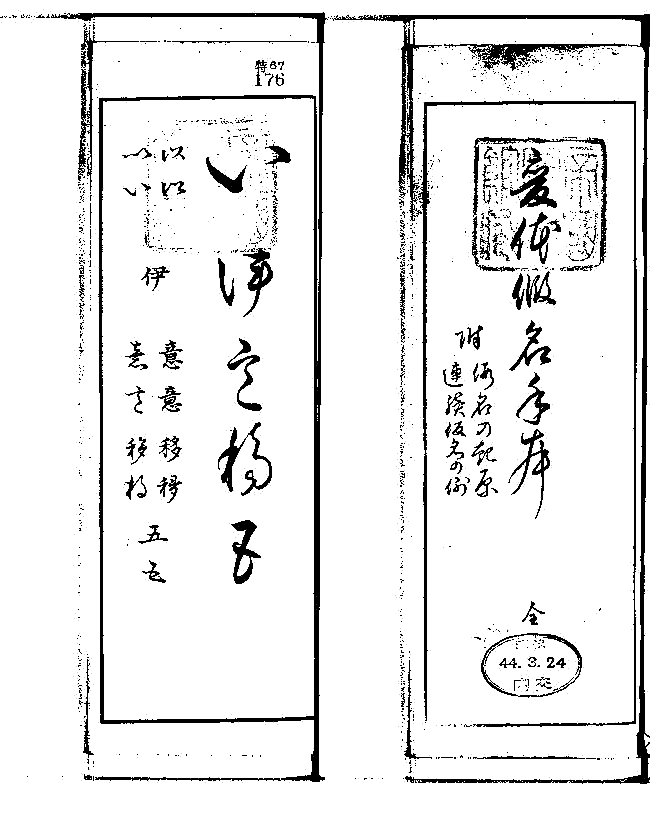 変体假名手本
附
仮名の起原
連綿仮名の例
全
44. 3. 24
内交
特67
176
い伊意移五
以以
いい
伊
意意移移
意意移移
五五